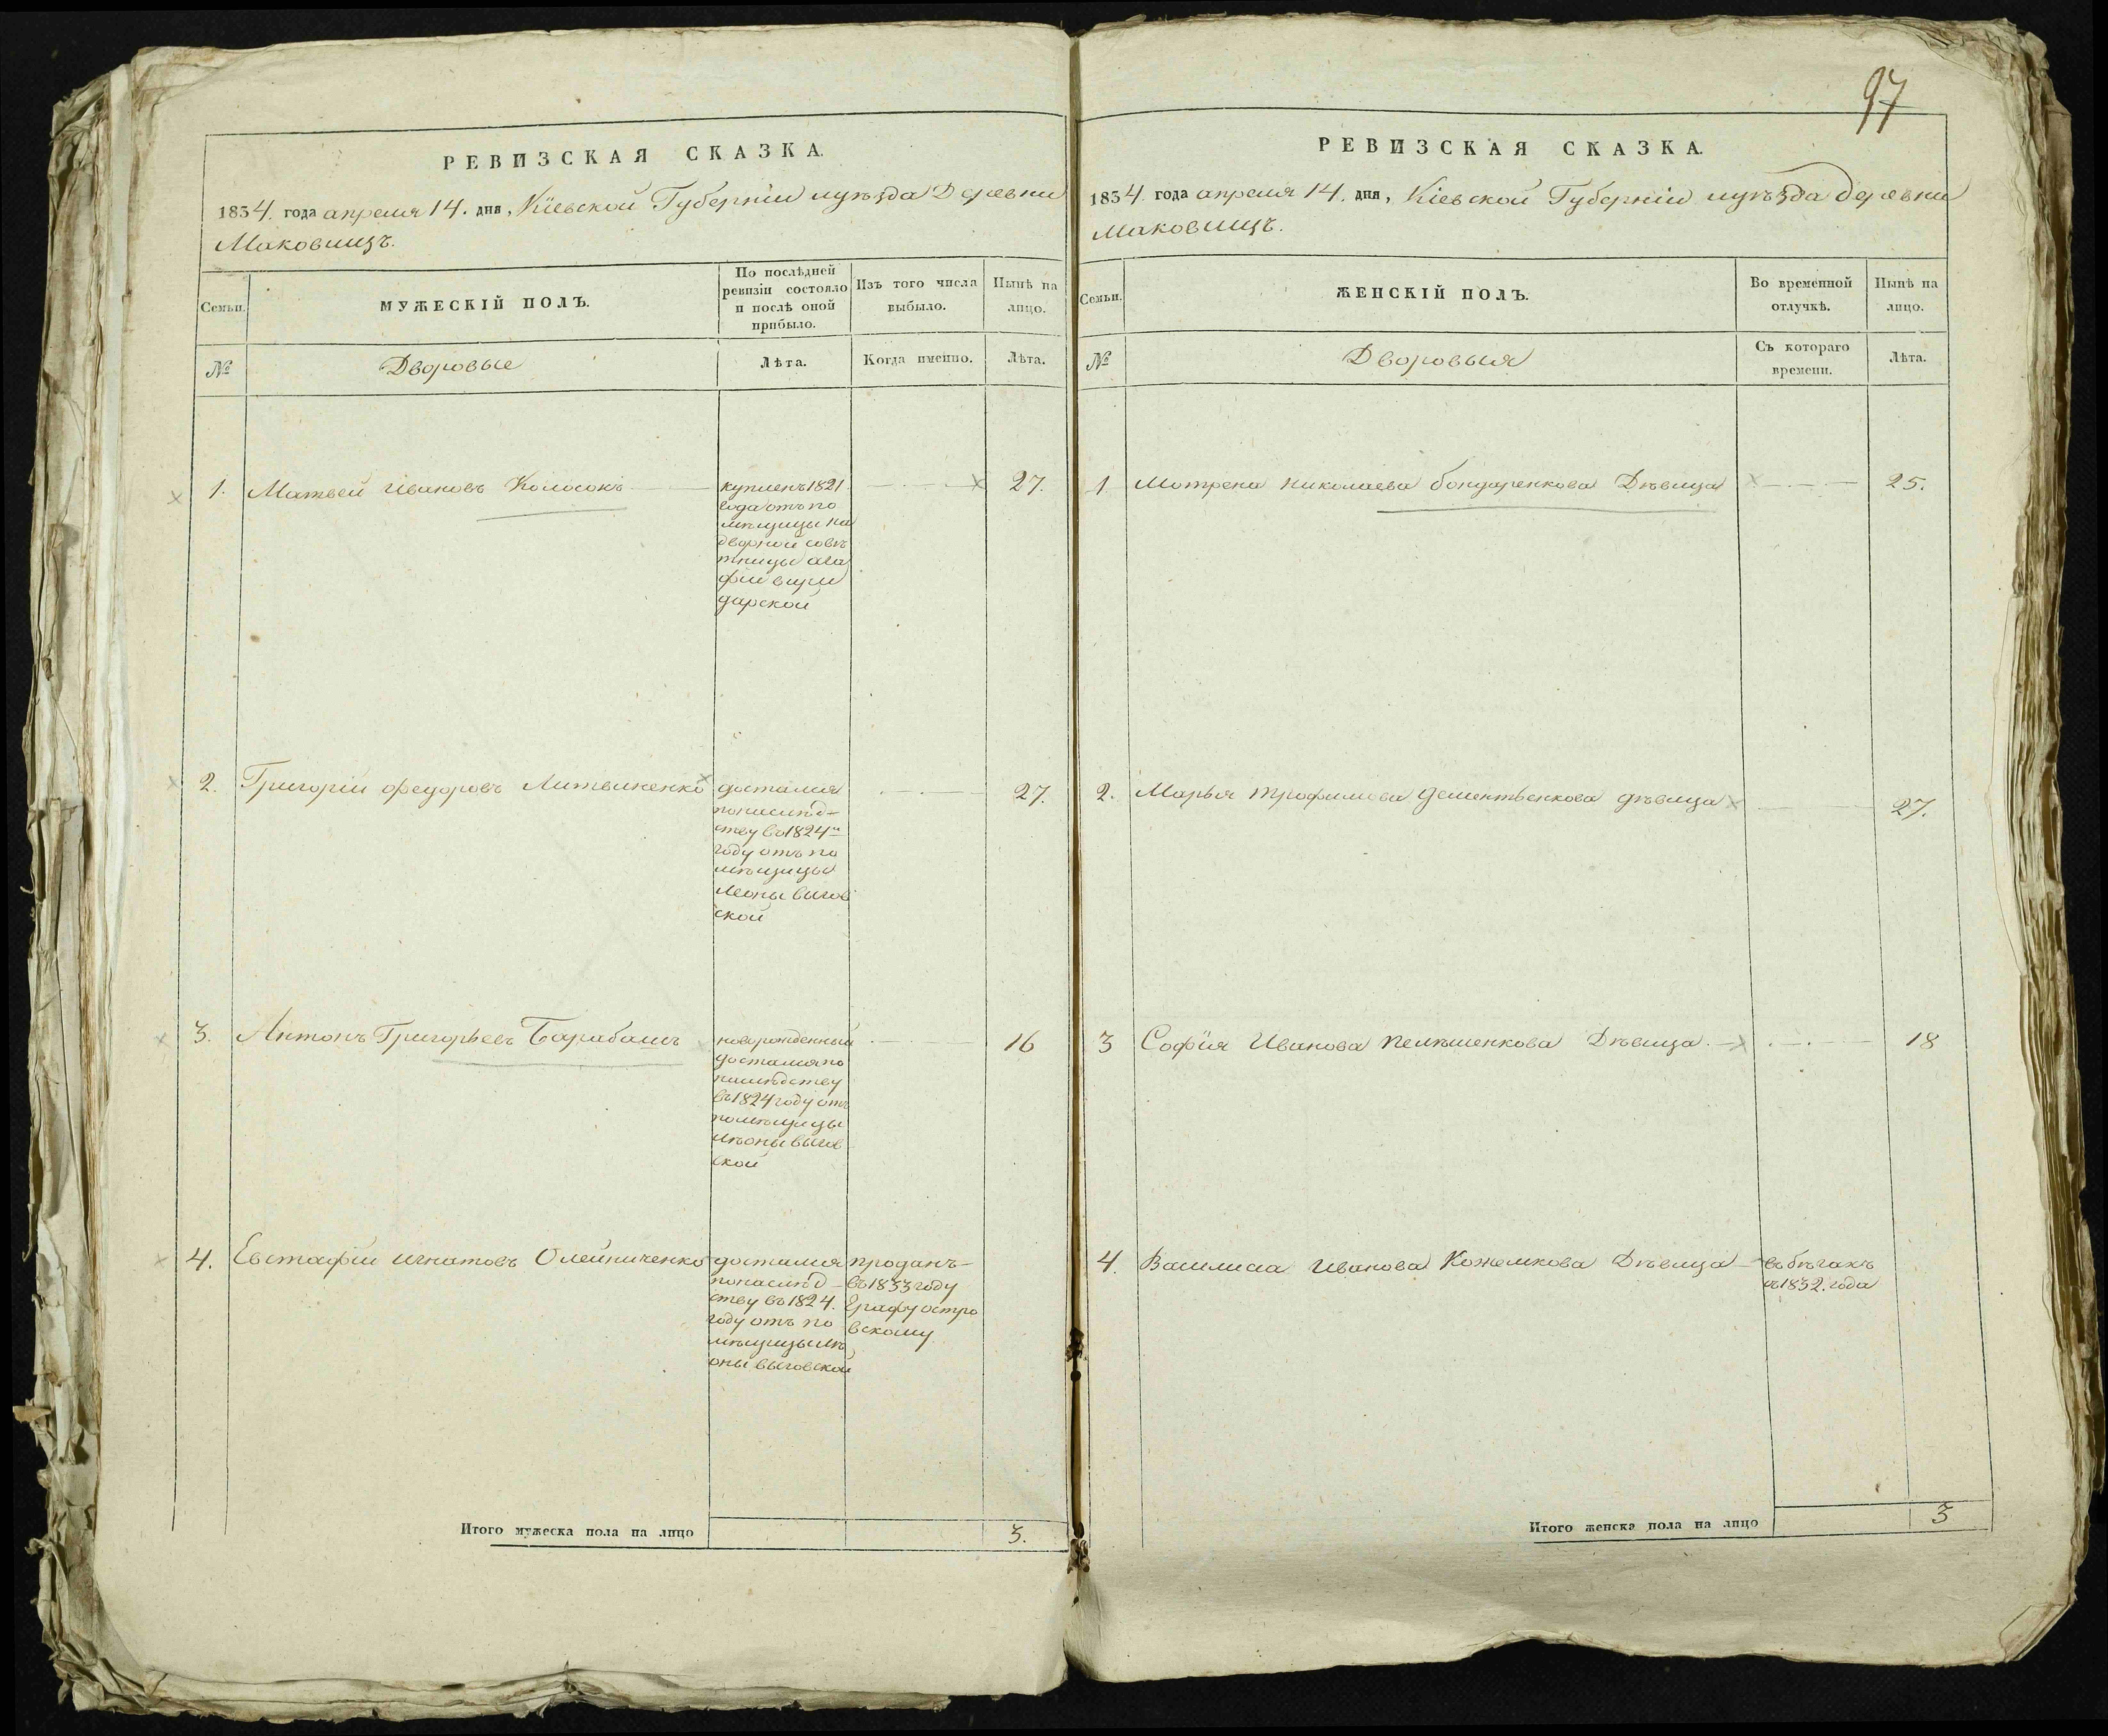 97
РЕВИЗСКАЯ СКАЗКА.
1834. года апреля 14. дня, Кіевской Губерніи иуѣзда Деревни
Маковищъ.
Семьи.
МУЖЕСКІЙ ПОЛЪ.
По послѣдней
ревизіи состояло
и послѣ оной
прибыло.
Изъ того числа
выбыло.
Нынѣ на
лицо.
№
Дворовые
Лѣта.
Когда именно.
Лѣта.
1. Матвей Ивановъ Колосокъ
купленъ 1821
года отъ по
мѣщицы на
дворной совѣ
тницы ага
фіи
дарской
27.
2. Григорій федоровъ Литвиненко
достался
понаслѣд-
ству въ 1824м
году отъ по
мѣщицы
Леоны вигов
ской
27.
3. Антонъ Григорьевъ Барабашъ
новорожденный
достался по
наслѣдству
въ 1824 году отъ
помѣщицы
лѣоны вигов
ской
16
4. Евстафій игнатовъ Олейниченко
достался
понаслѣд-
ству въ 1824.
году отъ по
мѣщицы лѣ
оны виговской
проданъ
въ 1833 году
Графу остро
вскому
Итого мужеска пола на лицо
3.
РЕВИЗСКАЯ СКАЗКА.
1834. года апреля 14. дня, Кіевской Губерніи иуѣзда деревни
Маковищъ.
Семьи.
ЖЕНСКІЙ ПОЛЪ.
Во временной
отлучкѣ.
Нынѣ на
лицо.
№
Дворовыя
Съ котораго
времени.
Лѣта.
1 Мотрена николаева бондаренкова Дѣвица
25.
2. Марья трофимова дементьенкова дѣвица
27.
3 Софія Иванова Дѣвица
18
4. Василиса Иванова Кожемкова Дѣвица
въ бѣгахъ
съ 1832. года
Итого женска пола на лицо
3